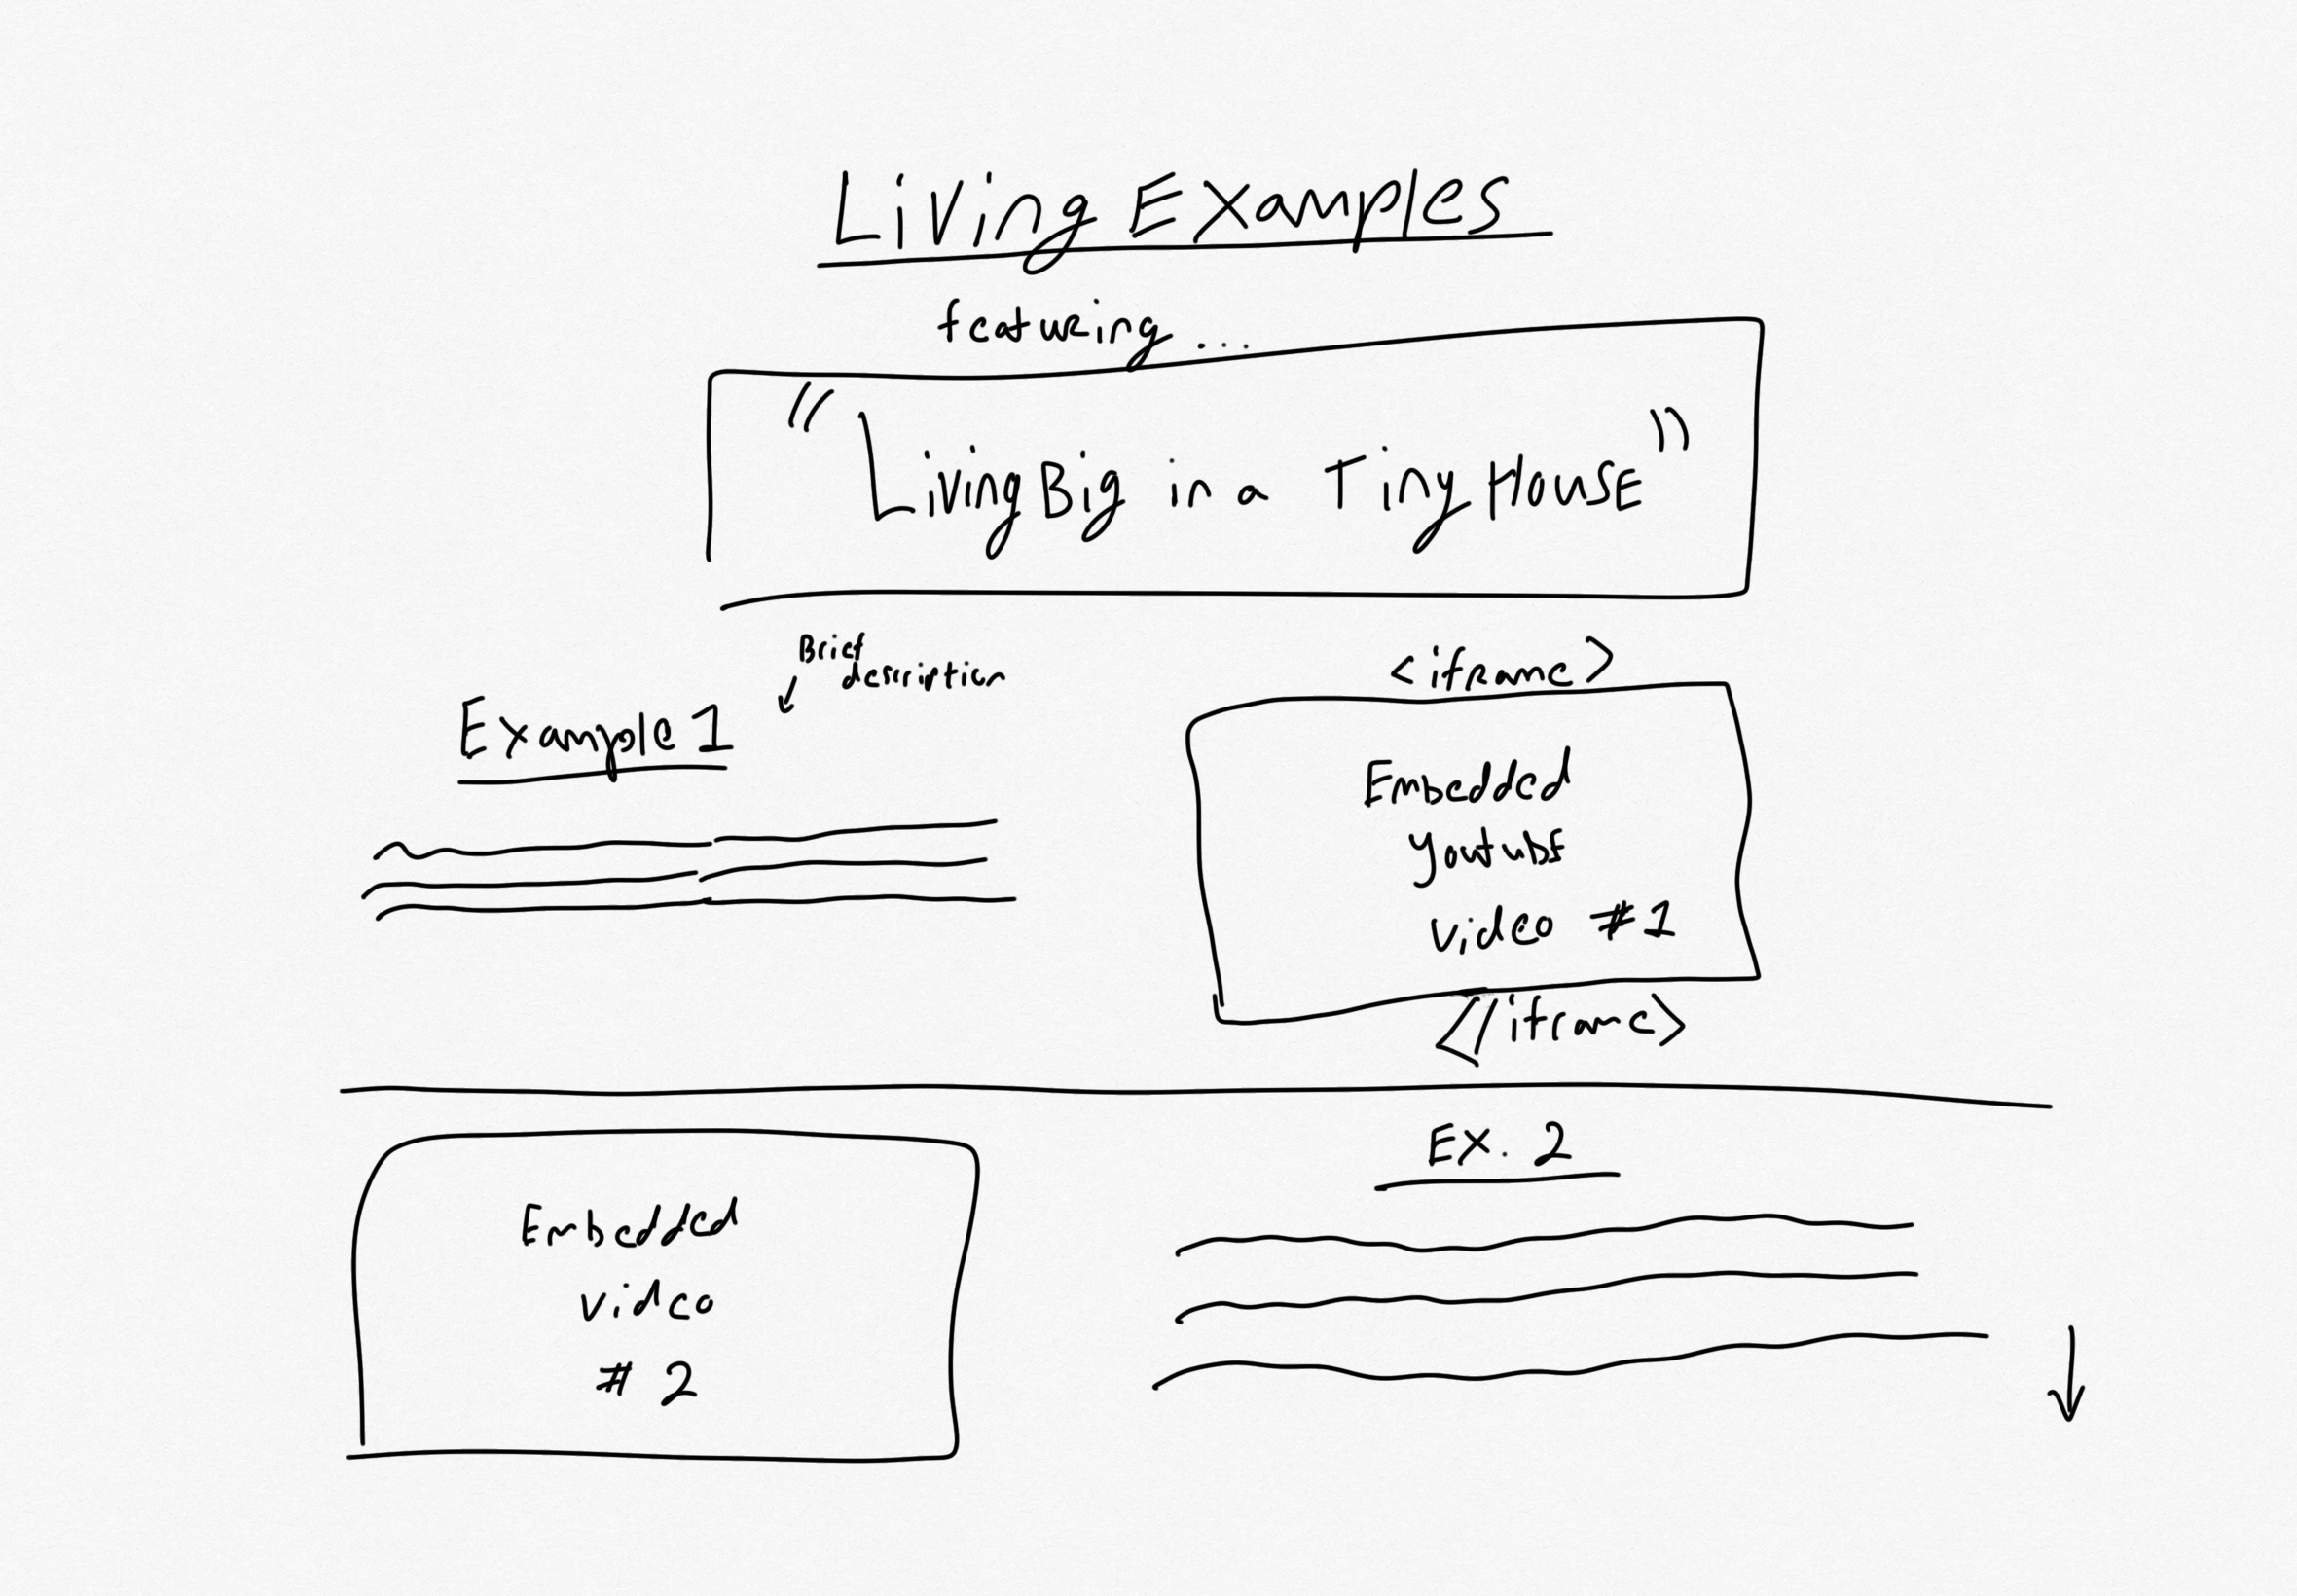 Living Examples
featuring...
"Living Big in a Tiny House"
Brief
description
Example 1
<iframe>
Embedded
youtube
video #1
</iframe>
Embedded
video
# 2
EX. 2